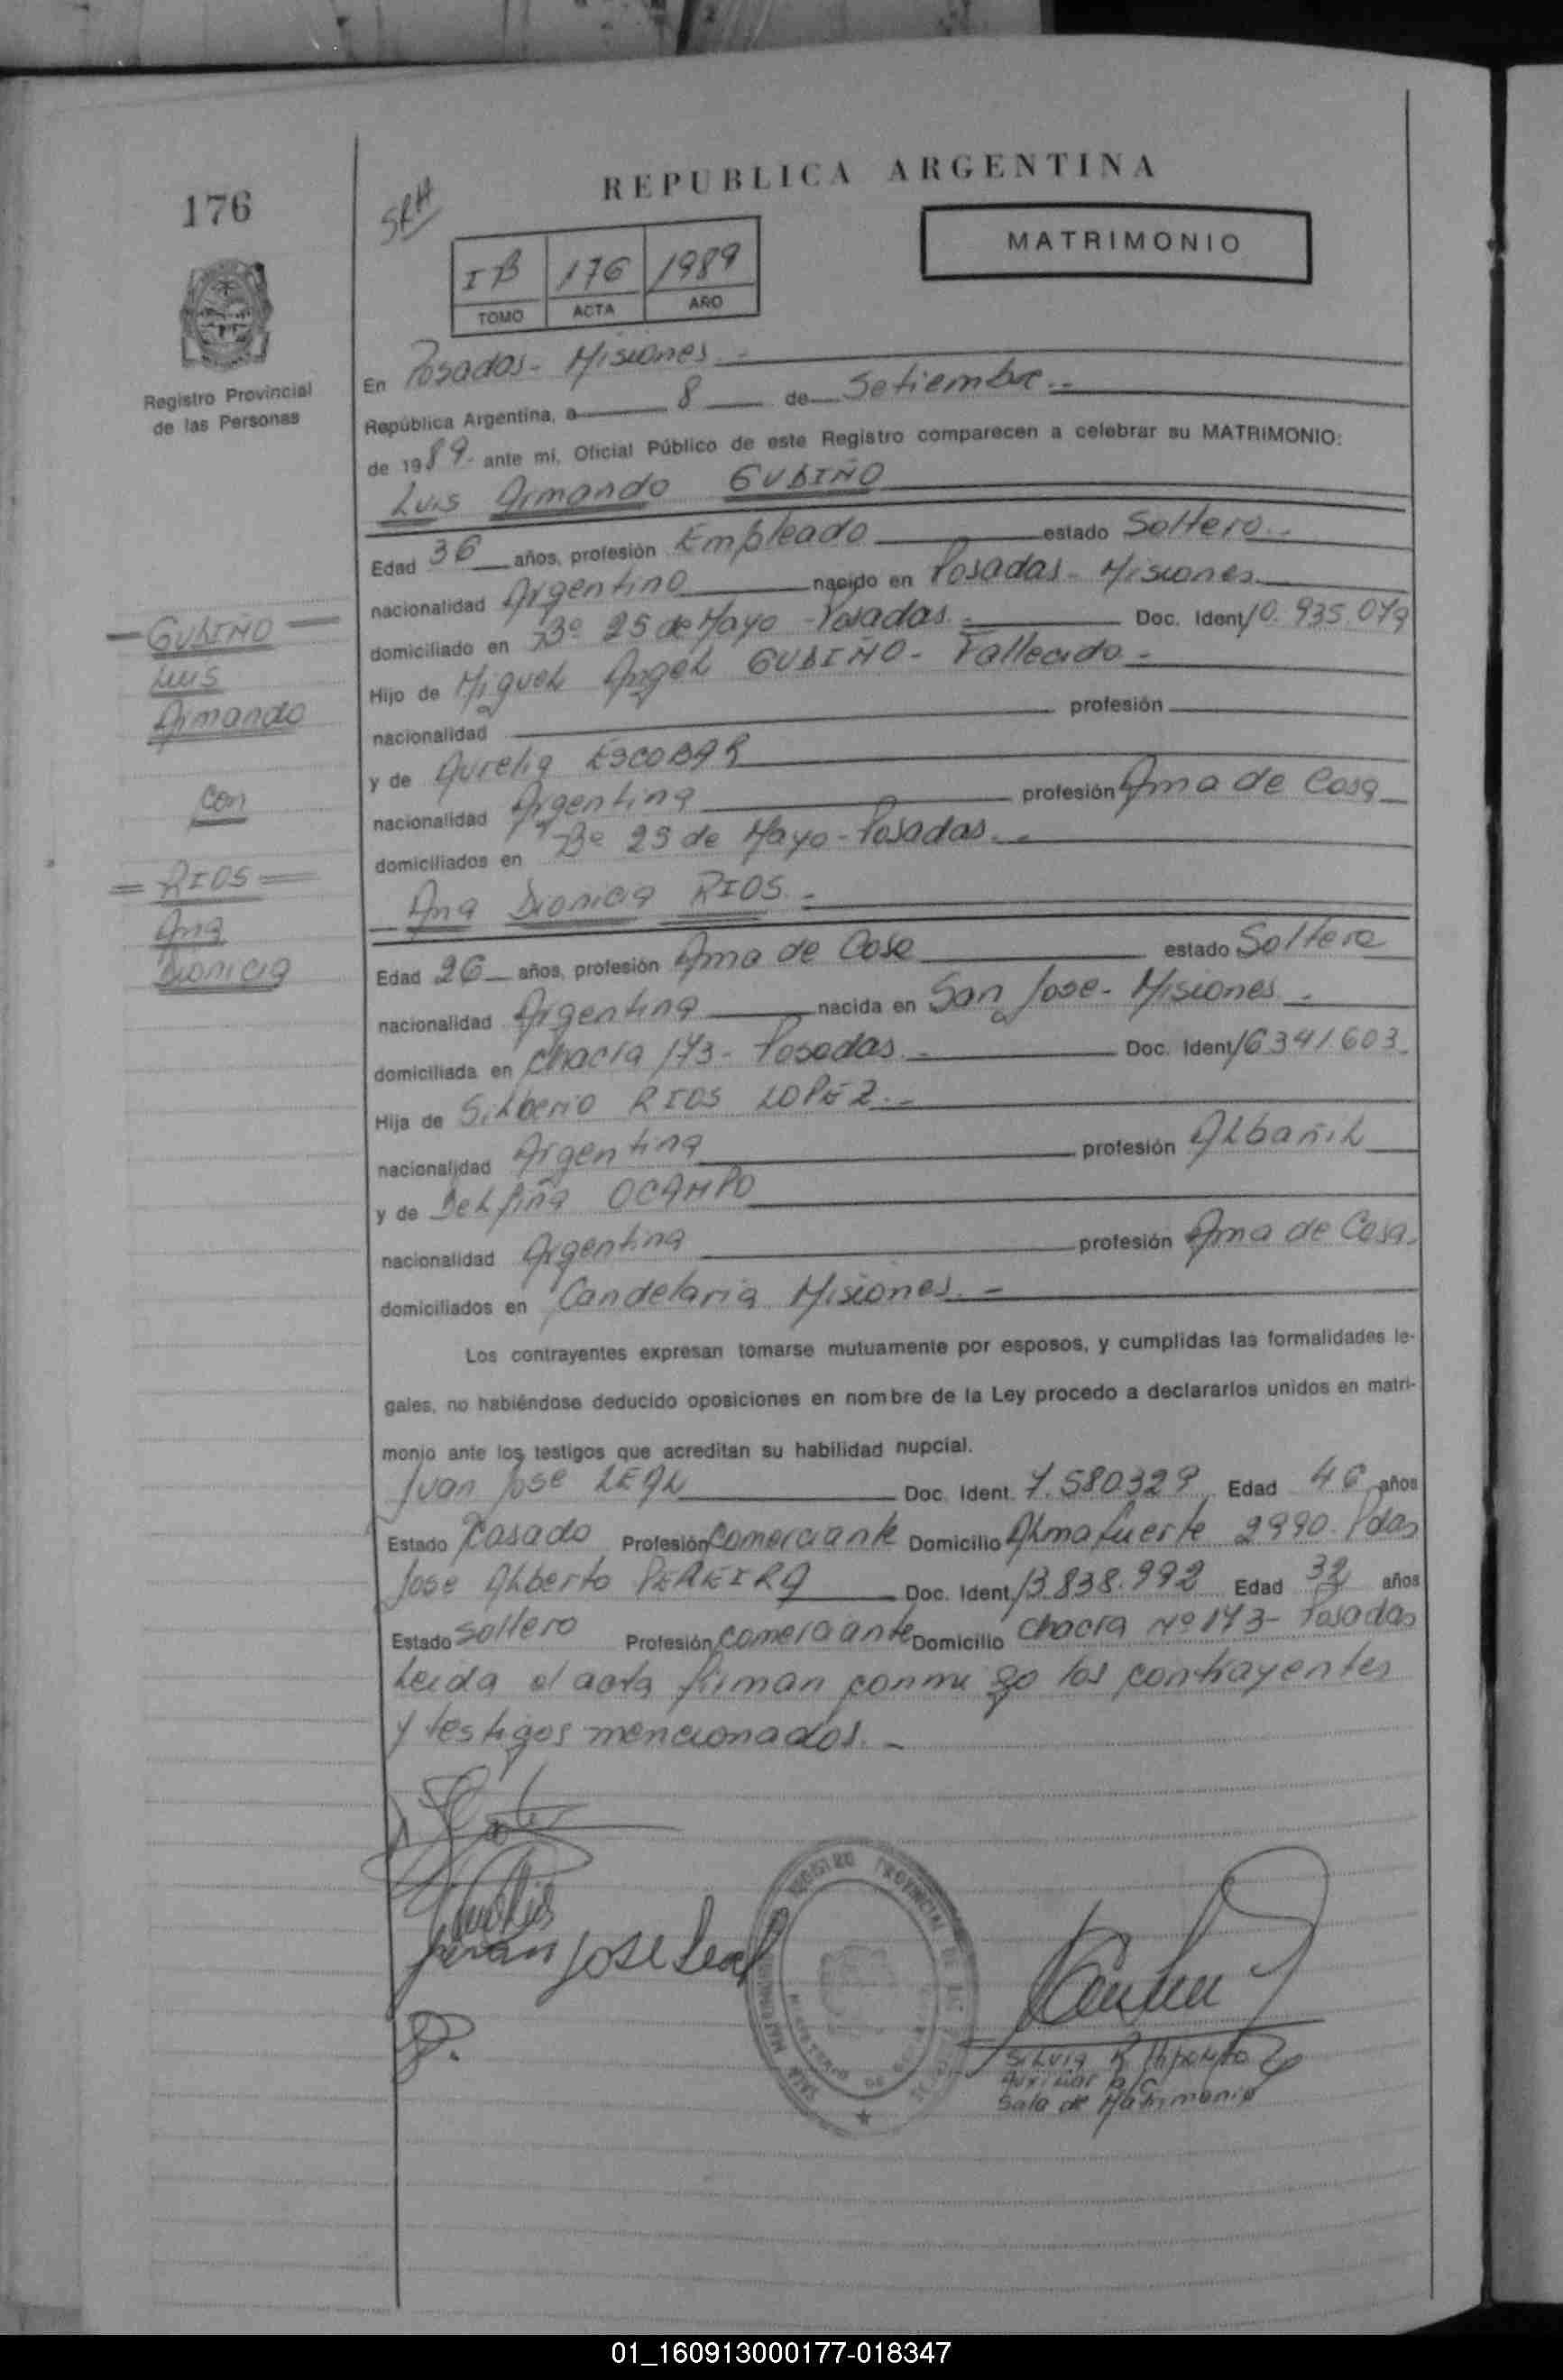 REPUBLICA ARGENTINA
176
SRH
MATRIMONIO
I B 176 1989
TOMO ACTA AÑO
Registro Provincial
de las Personas
En Posadas - Misiones.-
República Argentina, a 8 de Setiembre.-
de 1989.- ante mí, Oficial Público de este Registro comparecen a celebrar su MATRIMONIO:
Luis Armando GUDIÑO
Edad 36 años, profesión Empleado estado Soltero.-
nacionalidad Argentino nacido en Posadas - Misiones
domiciliado en Bº 25 de Mayo - Posadas.- Doc. Ident 10.935.079
Hijo de Miguel Angel GUDIÑO - Fallecido.-
nacionalidad profesión
y de Aurelia ESCOBAR
nacionalidad Argentina profesión Ama de Casa
domiciliados en Bº 25 de Mayo - Posadas.-
Ana Dionicia RIOS.-
Edad 26 años, profesión Ama de Casa estado Soltera
nacionalidad Argentina nacida en San Jose - Misiones.-
domiciliada en Chacra 173 - Posadas.- Doc. Ident 16341.603.
Hija de Silberio RIOS LOPEZ.-
nacionalidad Argentina profesión Albañil
y de Delfina OCAMPO
nacionalidad Argentina profesión Ama de Casa.
domiciliados en Candelaria Misiones.-
Los contrayentes expresan tomarse mutuamente por esposos, y cumplidas las formalidades le-
gales, no habiéndose deducido oposiciones en nombre de la Ley procedo a declararlos unidos en matri-
monio ante los testigos que acreditan su habilidad nupcial.
Juan Jose LEAL Doc. Ident. 7.580329 Edad 46 años
Estado Casado Profesión Comerciante Domicilio Almafuerte 2990. Pdas
Jose Alberto PEREIRA Doc. Ident. 13.838.992 Edad 32 años
Estado Soltero Profesión Comerciante Domicilio Chacra Nº 173 - Posadas
Leida el acta firman conmigo los contrayentes
y testigos mencionados.-
GUDIÑO
Luis
Armando
Con
RIOS
Ana
Dionicia
Juan Jose Leal
REGISTRO PROVINCIAL DE LAS
Silvia R
Auxiliar
Sala de Matrimonio
01_160913000177-018347